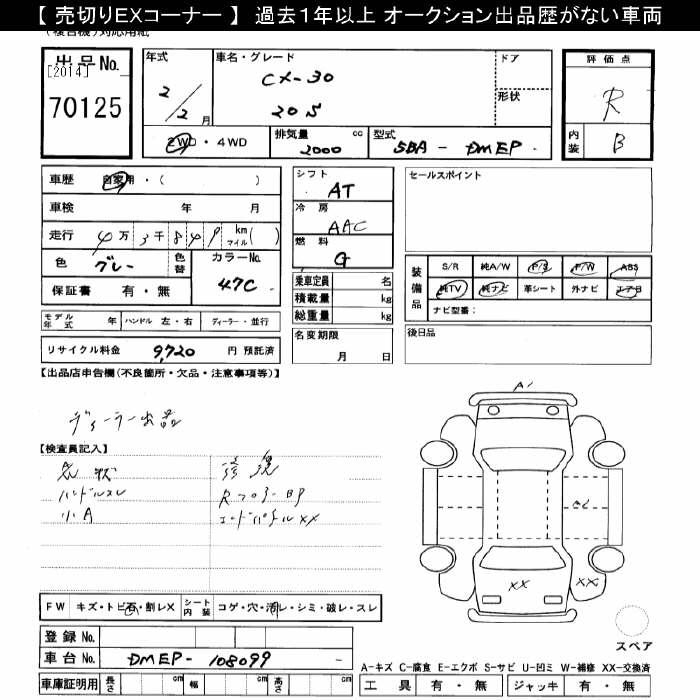 【 売切りEXコーナー 】 過去１年以上 オークション出品歴がない車両
(複合機)対応用紙
出品No.
[2014]
70125
年式
2/2月
車名・グレード
CX-30
20S
ドア
形状
評価点
R
内装
B
2WD・4WD
排気量 2000 cc
型式 5BA - DMEP
車歴 自家用・( )
車検 年 月
走行 4万3千849 km マイル( )
色 グレー 色替
カラーNo. 47C
保証書 有・無
シフト AT
冷房 AAC
燃料 G
乗車定員 名
積載量 kg
総重量 kg
セールスポイント
装備品
S/R 純A/W P/S P/W ABS
純TV 純ナビ 革シート 外ナビ エアB
ナビ型番:
モデル年式 年 ハンドル 左・右 ディーラー・並行
名変期限 月 日
後日品
リサイクル料金 9,720 円 預託済
【出品店申告欄(不良箇所・欠品・注意事項等)】
ディーラー出品
【検査員記入】
ハンドルスレ
小A
RフロアーBP
エンドパネルXX
A1
XX
XX
FW キズ・トビ石・割レX シート内装 コゲ・穴・汚レ・シミ・破レ・スレ
登録No.
車台No. DMEP-108099
スペア
A-キズ C-腐食 E-エクボ S-サビ U-凹ミ W-補修 XX-交換済
車庫証明用 長さ cm 幅 cm 高さ cm
工具 有・無 ジャッキ 有・無